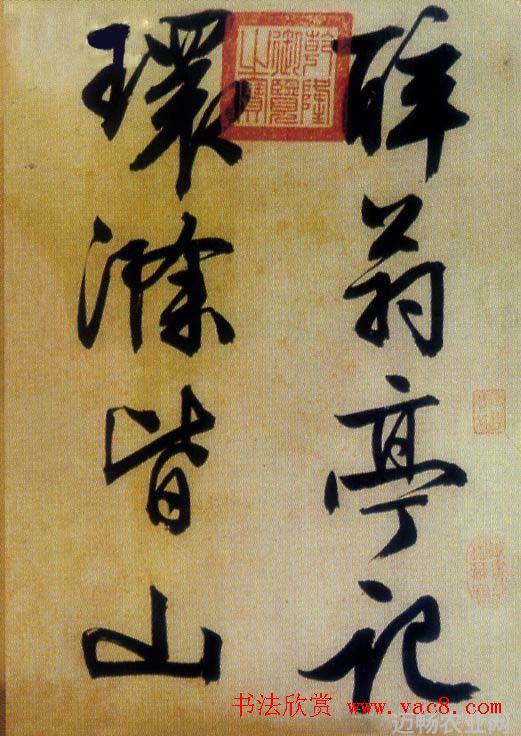 醉翁亭记
環滁皆山
乾隆御覽之寶
书法欣赏 www.yac8.com
迈畅农业网